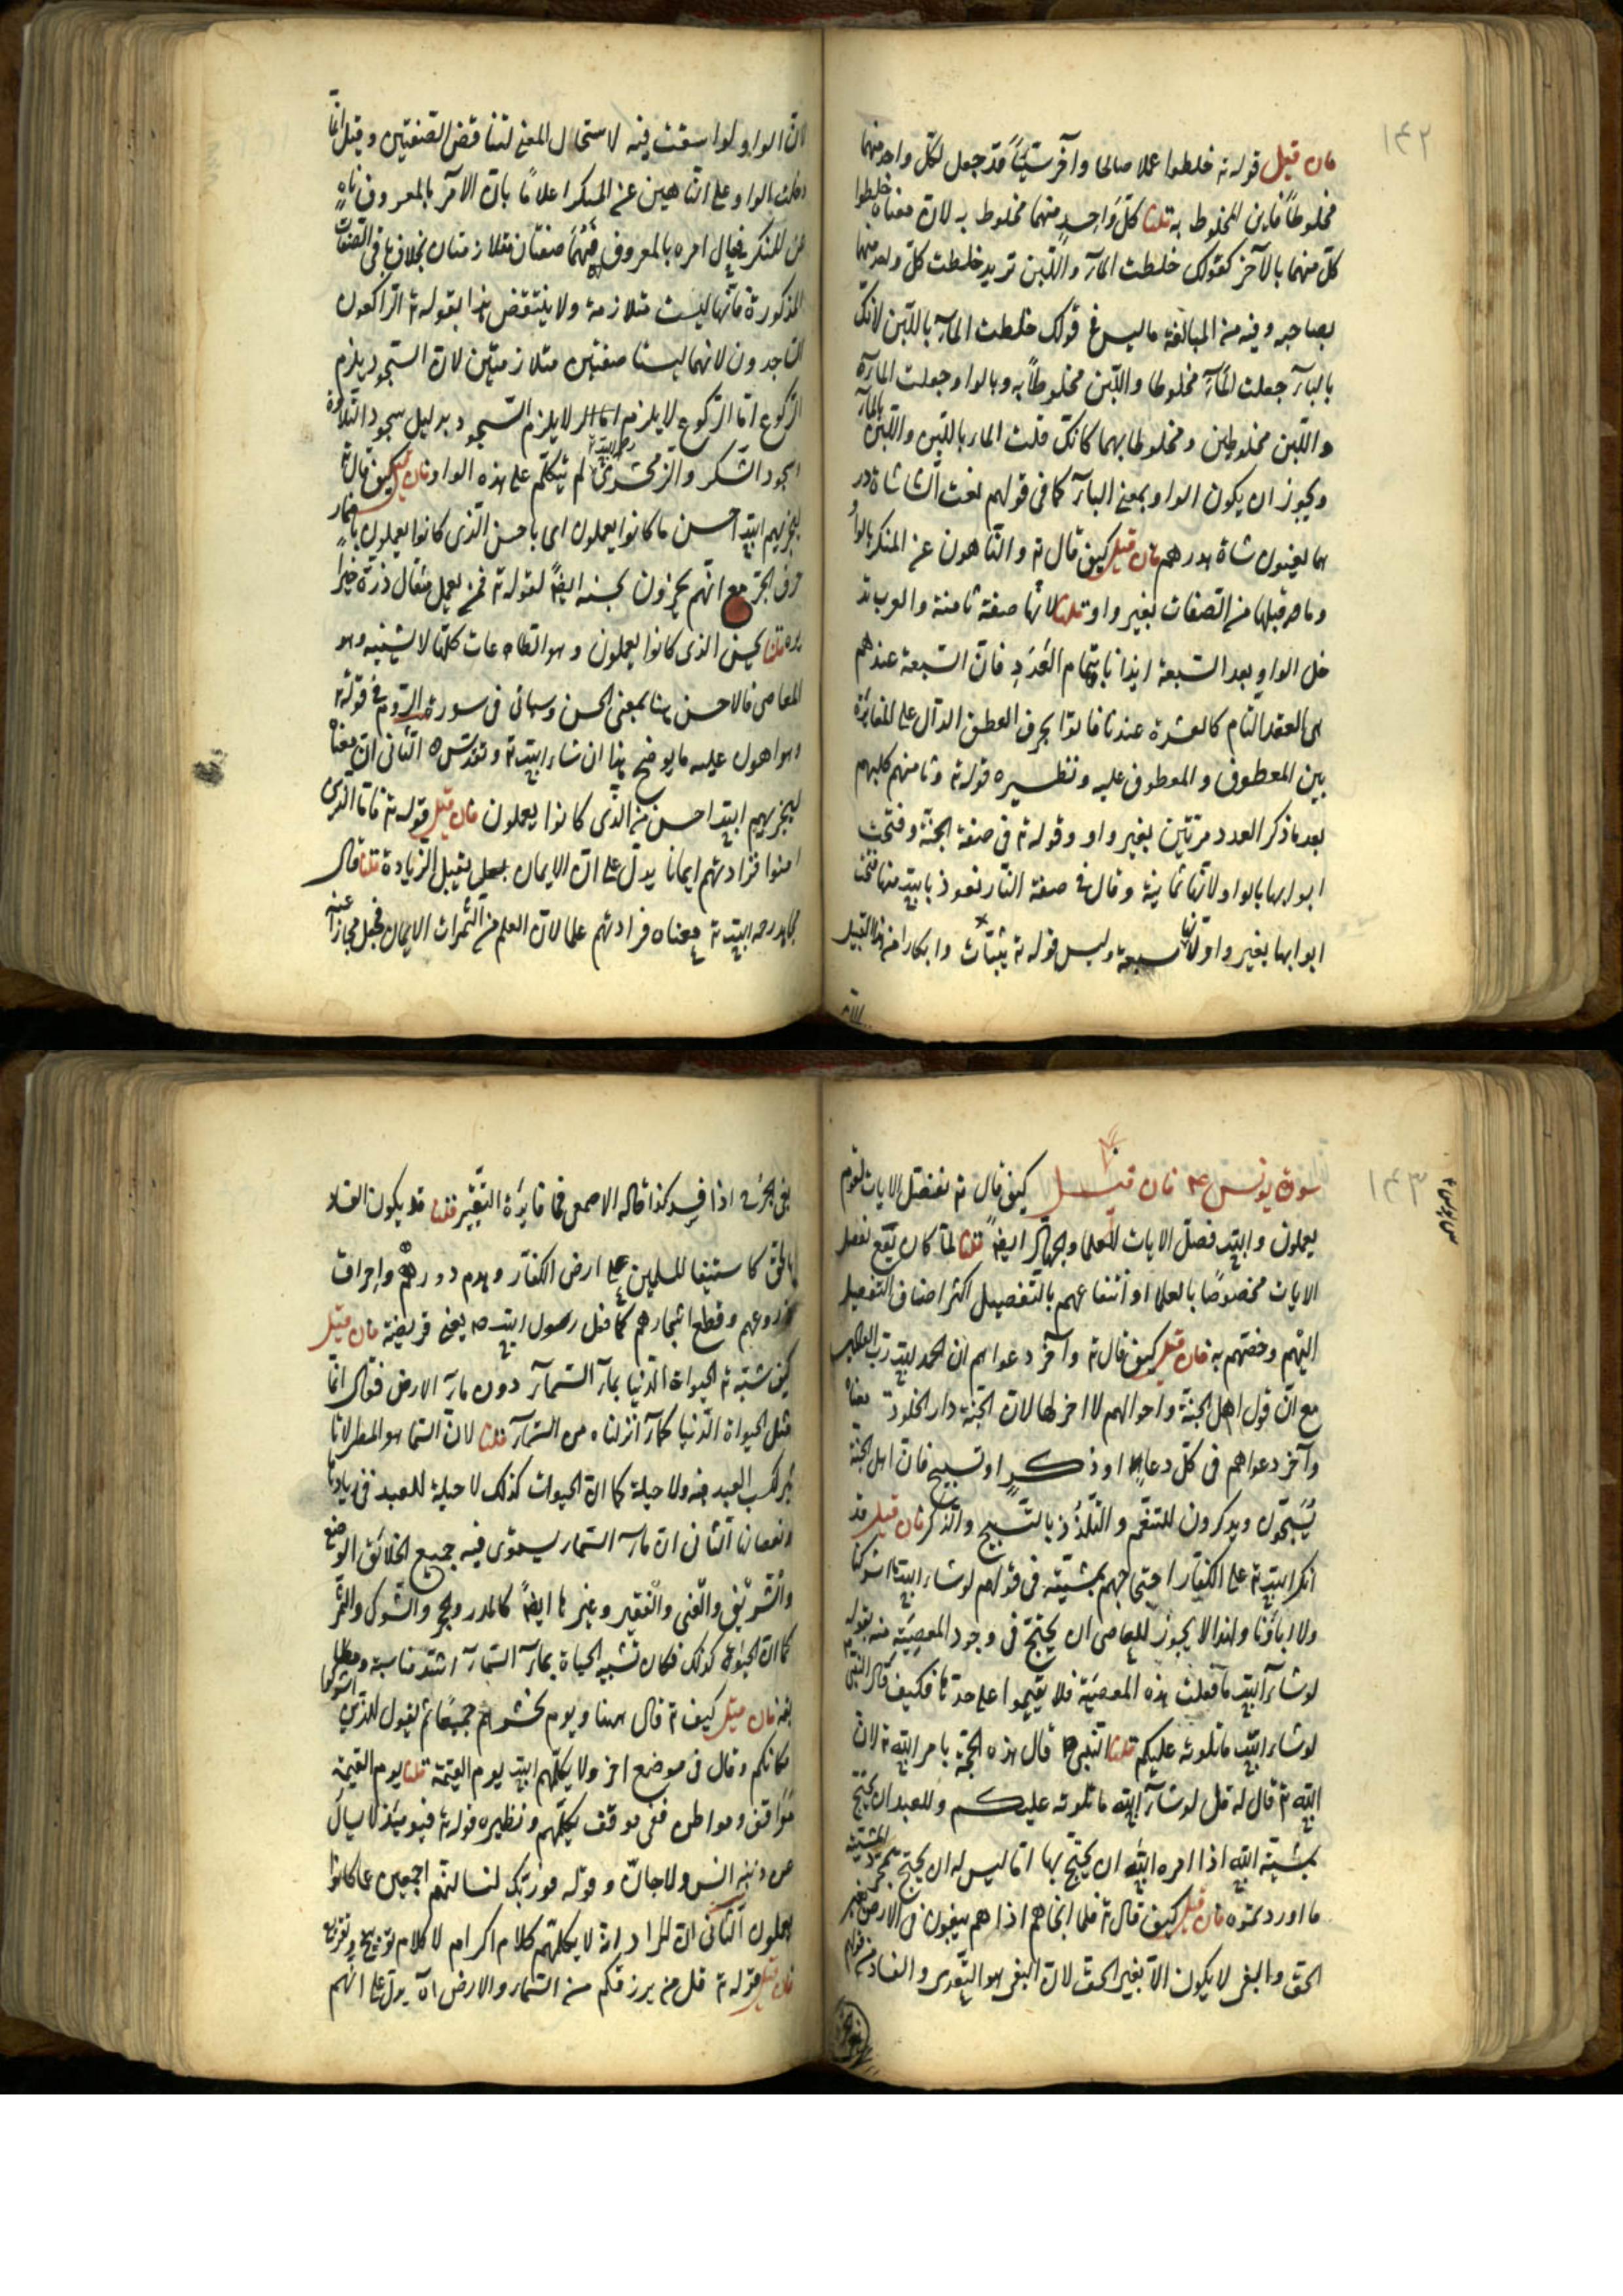 ١٤٢
فان قيل قوله ته خلطوا عملا صالحا وآخر سيئاً قد جعل لكل واحد منهما
مخلوطاً فاين المخلوط به قلنا كل واحدٍ منهما مخلوط به لان معناه خلطوا
كل منهما بالآخر كقولك خلطت المآء واللبن تريد خلطت كل واحد منهما
بصاحبه وفيه من المبالغة ما ليس في قولك خلطت المآء باللبن لانك
بالبآء جعلت المآء مخلوطا واللبن مخلوطاً به وبالواو جعلت المآء
واللبن مخلوطين ومخلوطا بهما كانك قلت الماء باللبن واللبن بالمآء
ويجوز ان يكون الواو بمعنى البآء كما في قولهم بعت الشاء شاة ودر
هما يعنون شاة بدرهم فان قيل كيف قال ته والناهون عن المنكر بالواو
وما هو قبلها من الصفات بغير واو قلنا لانها صفة ثامنة والعرب تد
خل الواو بعد السبعة ايذانا بتمام العَدَدِ فان السبعة عندهم
هي العقد التام كالعشرة عندنا فاتوا بحرف العطف الدال على المغايرة
بين المعطوف والمعطوف عليه ونظيره قوله ته وثامنهم كلبهم
بعد ما ذكر العدد مرتين بغير واو وقوله ته في صفة الجنة وفتحت
ابوابها بالواو لانها ثمانية وقال في صفة النار نعوذ بالله منها فتحت
ابوابها بغير واو لانها سبعة وليس قوله ته ثيبات وابكارا من هذا القبيل
لان الواو لو اسقطت فيه لاستحال المعنى لتناقض الصفتين وقيل انما
دخلت بالواو على الناهين عن المنكر اعلاما بان الآمر بالمعروف ناهٍ
عن المنكر في حال امره بالمعروف فهُما صفتان متلازمتان بخلاف باقي الصفات
المذكورة فانها ليست متلازمة ولا ينتقض هذا بقوله ته الراكعون
الساجدون لانهما ليستا صفتين متلازمتين لان السجود يلزم
الركوع اما الركوع لا يلزم السجود بدليل سجود التلاوة
وسجود الشكر والزمخشري رحمه الله لم يتكلم على هذه الواو فان قيل كيف قال ته
ليجزيهم الله احسن ما كانوا يعملون اى باحسن الذي كانوا يعملون باضمار
حرف الجر مع انهم يجزون بحسنه ايضاً لقوله ته فمن يعمل مثقال ذرة خيراً
يره قلنا بحسن الذي كانوا يعملون وهو الطاعات كلها لا بسيئه وهو
المعاصى فالاحسن هنا بمعنى الحسن وسيأتى في سورة الروم في قوله ته
وهو اهون عليه ما يوضح هذا ان شاء الله ته وتقدس الثاني ان معناه
ليجزيهم الله احسن من الذي كانوا يعملون فان قيل قوله ته فاما الذين
امنوا فزادتهم ايمانا يدل على ان الايمان يقبل الزيادة قلنا قال
مجاهد رحمه الله ته معناه فزادتهم علما لان العلم من الثمرات الايمان فجعل مجازا عنه
١٤٣
سورة يونس عم فان قيل كيف قال ته نفصل الايات لقوم
يعملون والله فصل الايات للعلما والجهال ايضاً قلنا لما كان يقع تفصيل
الايات مخصوصًا بالعلما وانتفاعهم بالتفصيل اكثر اضاف التفصيل
اليهم وخصهم به فان قيل كيف قال ته وآخر دعواهم ان الحمد لله رب العالمين
مع ان قول اهل الجنة واحوالهم لا اخر لها لان الجنة دار الخلود معناه
وآخر دعواهم في كل دعاء او ذكرٍ او تسبيح فان اهل الجنة
يُسَبّحون ويذكرون للتنعم والتلذذ بالتسبيح والذكر فان قيل قد
انكر الله ته على الكفار احتجاجهم بمشيته في قولهم لو شاء الله ما اشركنا
ولا اباؤنا ولهذا لا يجوز للعاصى ان يحتج في وجود المعصِيَة منه بقوله
لو شآء الله ما فعلت هذه المعصَية فلا يقيموا على حدها فكيف قال النبي
لو شاء الله ما تلوته عليكم قلنا النبي قال هذه الحجة بامر الله ته لان
الله ته قال له قل لو شآء الله ما تلوته عليكم وللعبد ان يحتج
بمشية الله اذا امره الله ان يحتج بها اما ليس له ان يحتج بمجرد المشية
ما اورد نموه فان قيل كيف قال ته فلما انجاهم اذا هم يبغون في الارض بغير
الحق والبغى لا يكون الا بغير الحق لان البغى هو التعدى والفساد من قولهم
بغى الجرح اذا فسد كذا قاله الاصمعى فما فايدة التقيير قلنا قد يكون الفساد
بالحق كاستيفا المسلمين على ارض الكفار وهدم دورهم واحراق
زروعهم وقطع اشجارهم كما فعل رسول الله ص يعنى قريضة فان قيل
كيف شبّه ته الحيوات الدنيا بمآء السمآء دون مآء الارض فقال انما
مثل الحيوة الدنيا كمآء انزلناه من السمآء قلنا لان السما هو المطر لا تا
ثير لكسب العبد فيه ولا حيلة كما ان الحيوت كذلك لا حيلة للعبد في زيادتها
ونقصانها الثانى ان مآء السماء يستوى فيه جميع الخلائق الوضيع
والشريف والغنى والفقير وغيرها ايضاً كالمدر والحجر والشوك والثمر
كما ان الحيوة كذلك فكان تشبيه الحياة بمآء السمآء اشد مناسبة ومطا
بقة فان قيل كيف ته قال ههنا ويوم نحشرهم جميعًا ثم نقول للذين اشركوا
مكانكم وقال في موضع اخر ولا يكلمهم الله يوم القيمة قلنا يوم القيمة
مواقف ومواطن ففى موقف يكلمهم ونظيره قوله ته فيومئذ لا يسأل
عن ذنبه انس ولا جان وقوله فوربك لنسألنهم اجمعين عما كانوا
يعملون الثانى ان المراد انه لا يكلمهم كلام اكرام لا كلام توبيخ وتقريع
فان قيل قوله ته قل من يرزقكم من السماء والارض الآ يدل على انهم